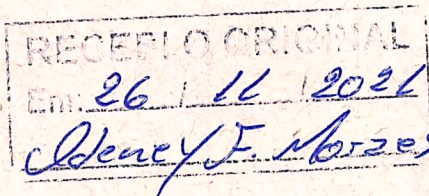 RECEBI O ORIGINAL
Em: 26 / 11 / 2021
F. Moraes